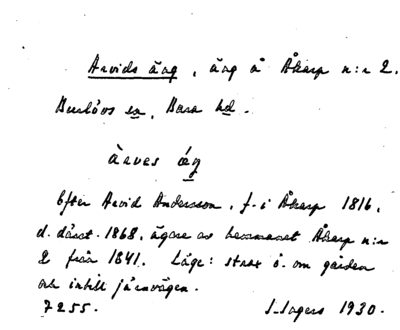 Arvids äng, äng å Åkarp n:r 2.
Burlövs sn, Bara hd.
àrves éŋ
Efter Arvid Andersson, f. i Åkarp 1816,
d. därst. 1868, ägare av hemmanet Åkarp n:r
2 från 1841. Läge: strax ö. om gården
och intill järnvägen.
7255. I. Ingers 1930.